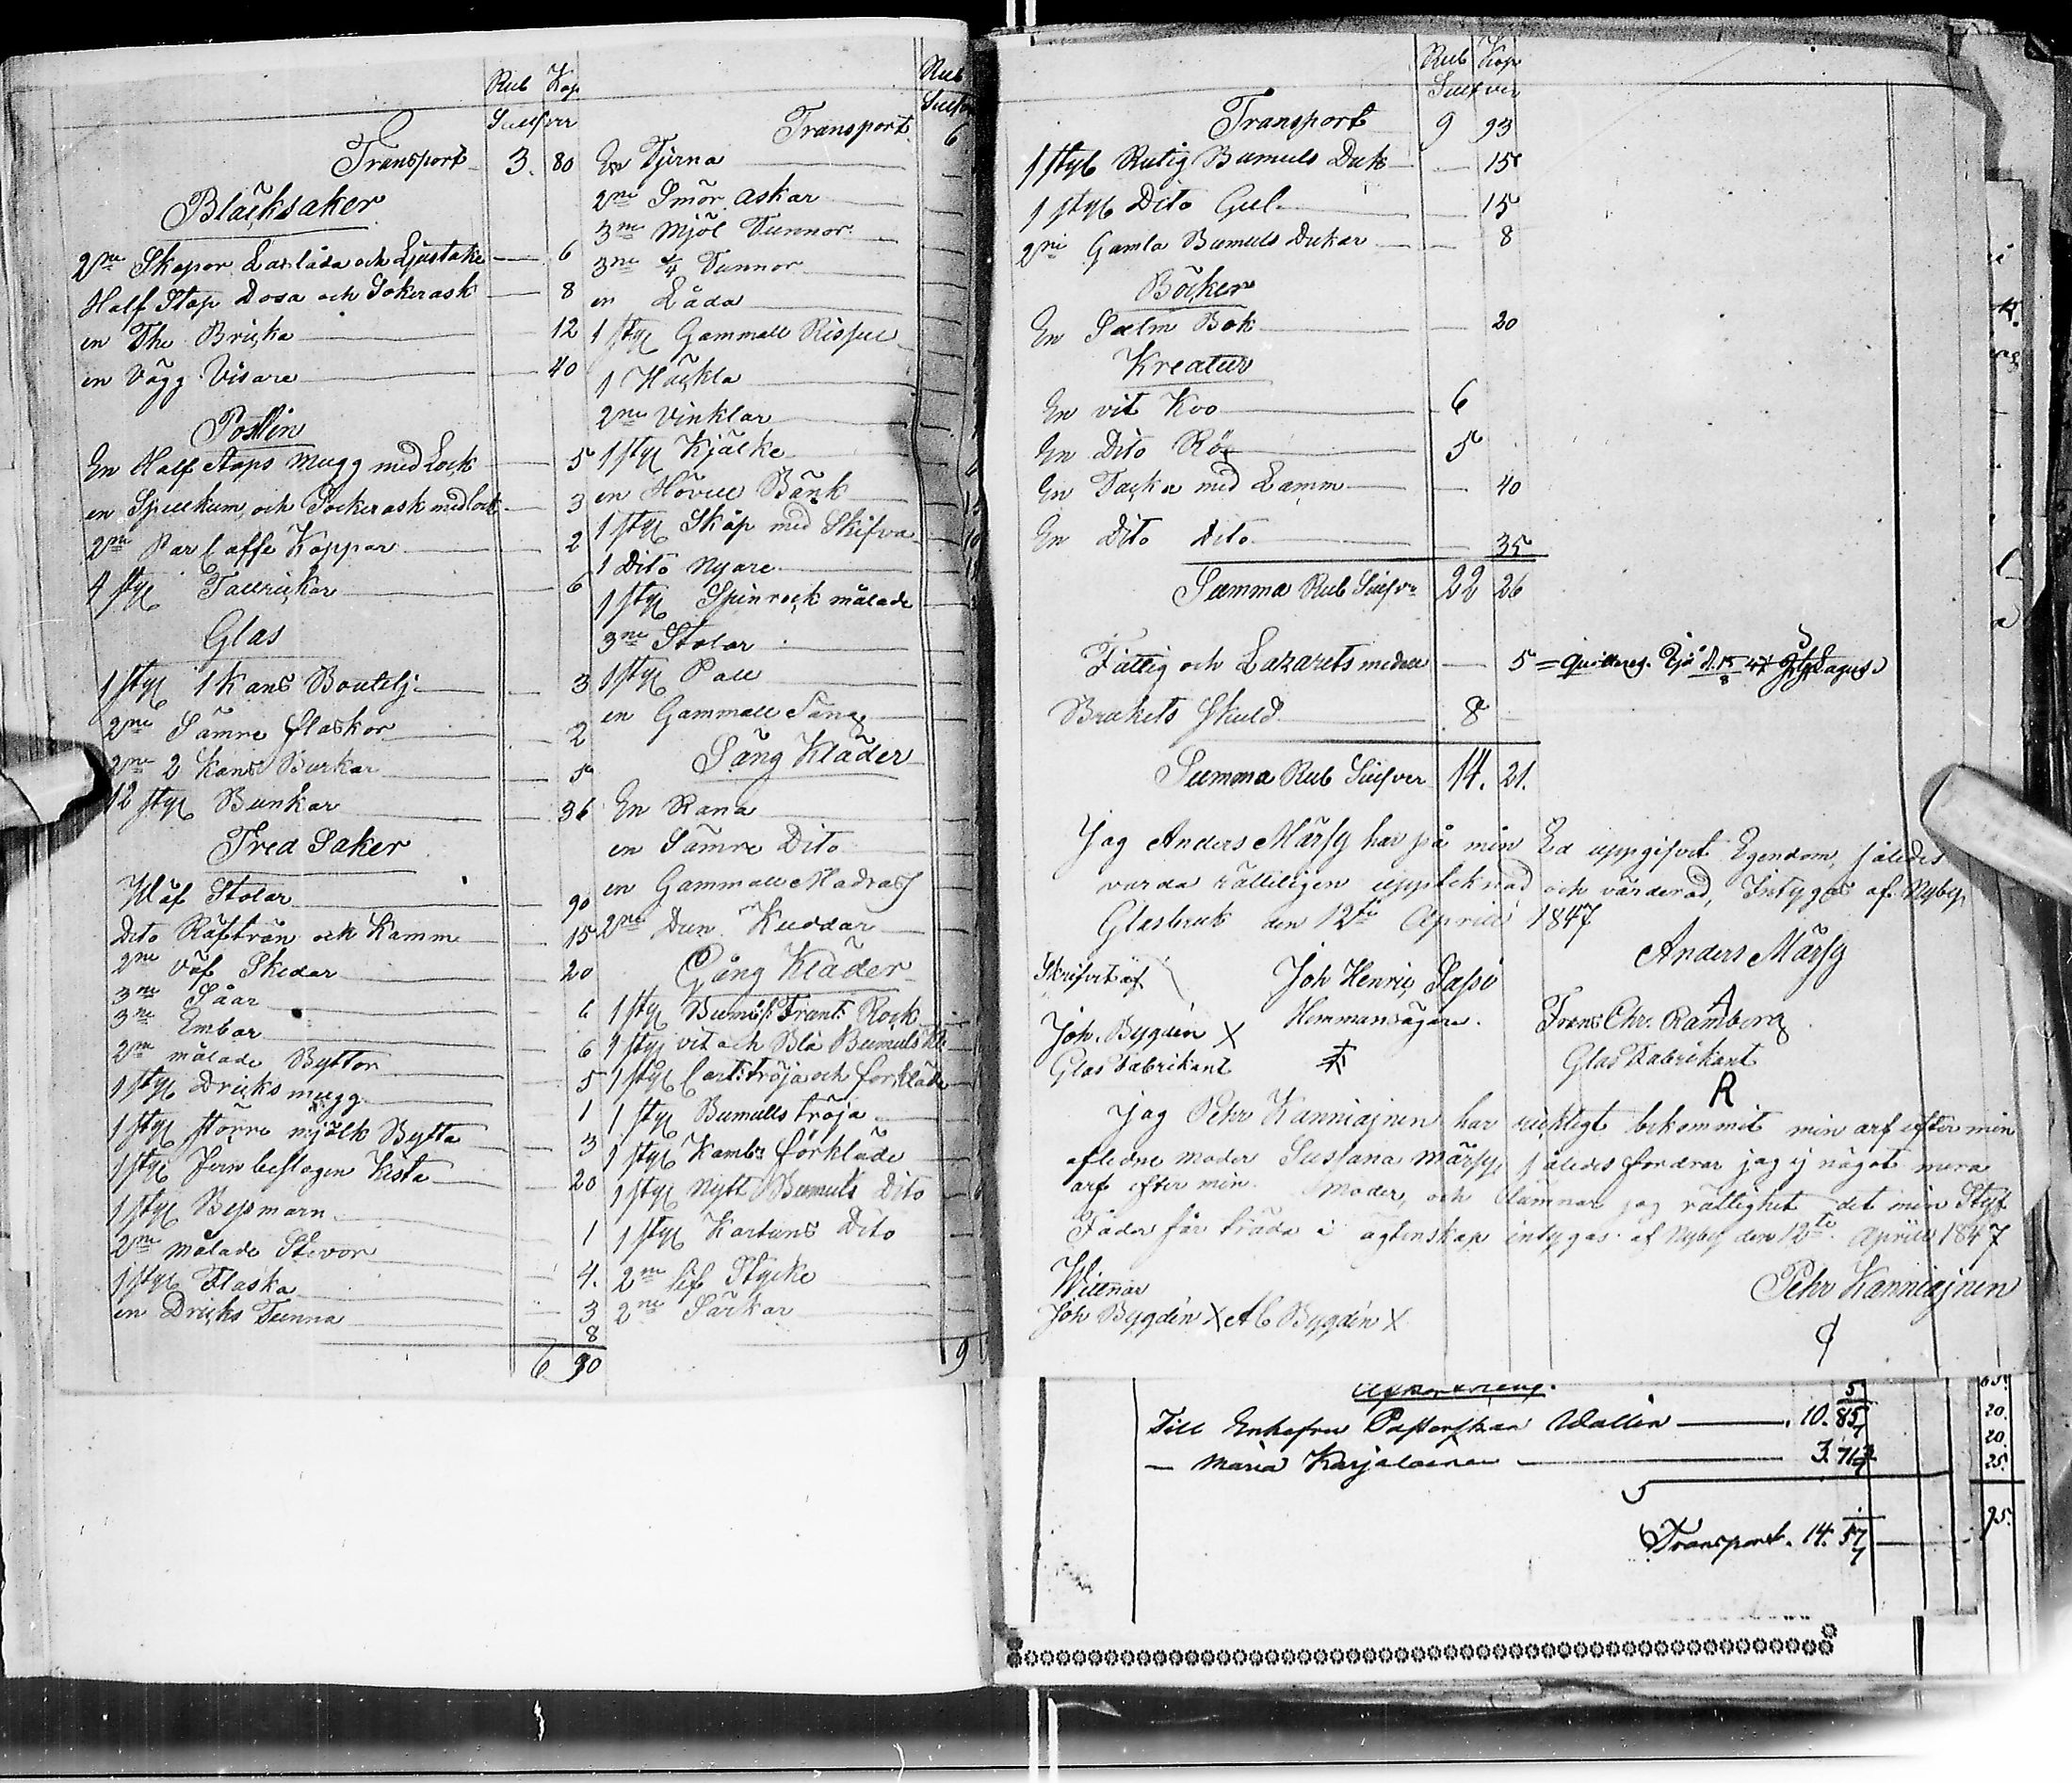 Rub Kop
Sillfver
Transport 3. 80
Bläcksaker
2ne Skopor Laslåda och Ljustake — 6
Half Stop Dosa och Sokerask — 8
en The Bricka — 12
en Vägg Visare — 40
Poslin
En Half Stops Mugg med Lock — 5
en Spillkum och Sockerask med lock — 3
2ne Par Caffe Koppar — 2
4 styg Tallrickar — 6
Glas
1 styg 1 Kans Boutelj — 3
2ne Sämre flaskor — 2
2ne 2 Kans Burkar — 5
12 styg Bunkar — 36
Tred Saker
Wäf Stolar — 90
Dito Räftrån och Kamm — 15
2ne Väf Skedar — 20
3ne Såar — 6
3ne Embar — 6
2ne målade Byttor — 5
1 styg Dricks mugg — 1
1 styg större mjölk Bytta — 3
1 styg Jern beslagen Kista — 20
1 styg Besmarn — 1
2ne målade Stevor — 4.
1 styg Flaska — 3
en Dricks Tunna — 8
6 90
Rub
Sillfv
Transport 6
En Tjerna
2ne Smör askar
3ne Mjöl Tunnor
3ne 1/4 Tunnor
en Låda
1 styg Gammall Rispel
1 Häckla
2ne Vinklar
1 styg Kjälke
en Hövell Bänk
1 styg Skåp med Skifva
1 Dito Nyare
1 styg Spinrock målade
3ne Stolar
1 styg Pall
en Gammall Säng
Säng Kläder
En Rana
en Sämre Dito
en Gammall Madrass
2ne Dun Kuddar
Gång Kläder
1 styg Bumls Frant: Rock
1 styg vit och Blå Bumuls
1 styg Cart: tröja och forkläde
1 styg Bumulls tröja
1 styg Kambs förkläde
1 styg Nytt Bumuls Dito
1 styg Kartuns Dito
2ne lif Stycke
2ne Särkar
9
Rub Kop
Sillfver
Transport 9 93
1 styg Rutig Bumuls Duk — 15
1 styg Dito Gul — 15
2ne Gamla Bumuls Dukar — 8
Böcker
En Salm Bok — 20
Kreatur
En vit Koo — 6
En Dito Rö — 5
En Tacka med Lamm — 40
En Dito Dito — 35
Summa Rub Silfvr 22 26
Fattig och Lazarets medell — 5 = qvitteras.
Brukets Skuld — 8
Summa Rub Silfver 14. 21.
Jag Anders Märsy har på min Ed uppgifvit Egendom, således
varda rätteligen upptcknad och värderad, Intygas af Nyby
Glasbruk den 12te Aprill 1847
Anders Märsy
Skrifvit af Joh Henric Passi
Hemmansägare.
Joh. Bygdén X Frans Chr. Ramberg
Glas Fabrikant Glas Fabrikant
R
Jag Pehr Kanniajnen har ricktigt bekommit min arf efter min
afledne moder Sussana Märsy, således fordrar jag ej något mera
arf efter min moder, och lämnar jag rättighet det min Styf
Fader får träda i ägtenskap intygas af Nyby den 12te Aprill 1847
Pehr Kanniajnen
Wittnar
Joh Bygdén X A C Bygdén X
5
Till Enkefru Pastorskan Wallin — 10. 85
— Maria Karjalainen — 3. 71
Transport. 14. 57
20.
20.
25.